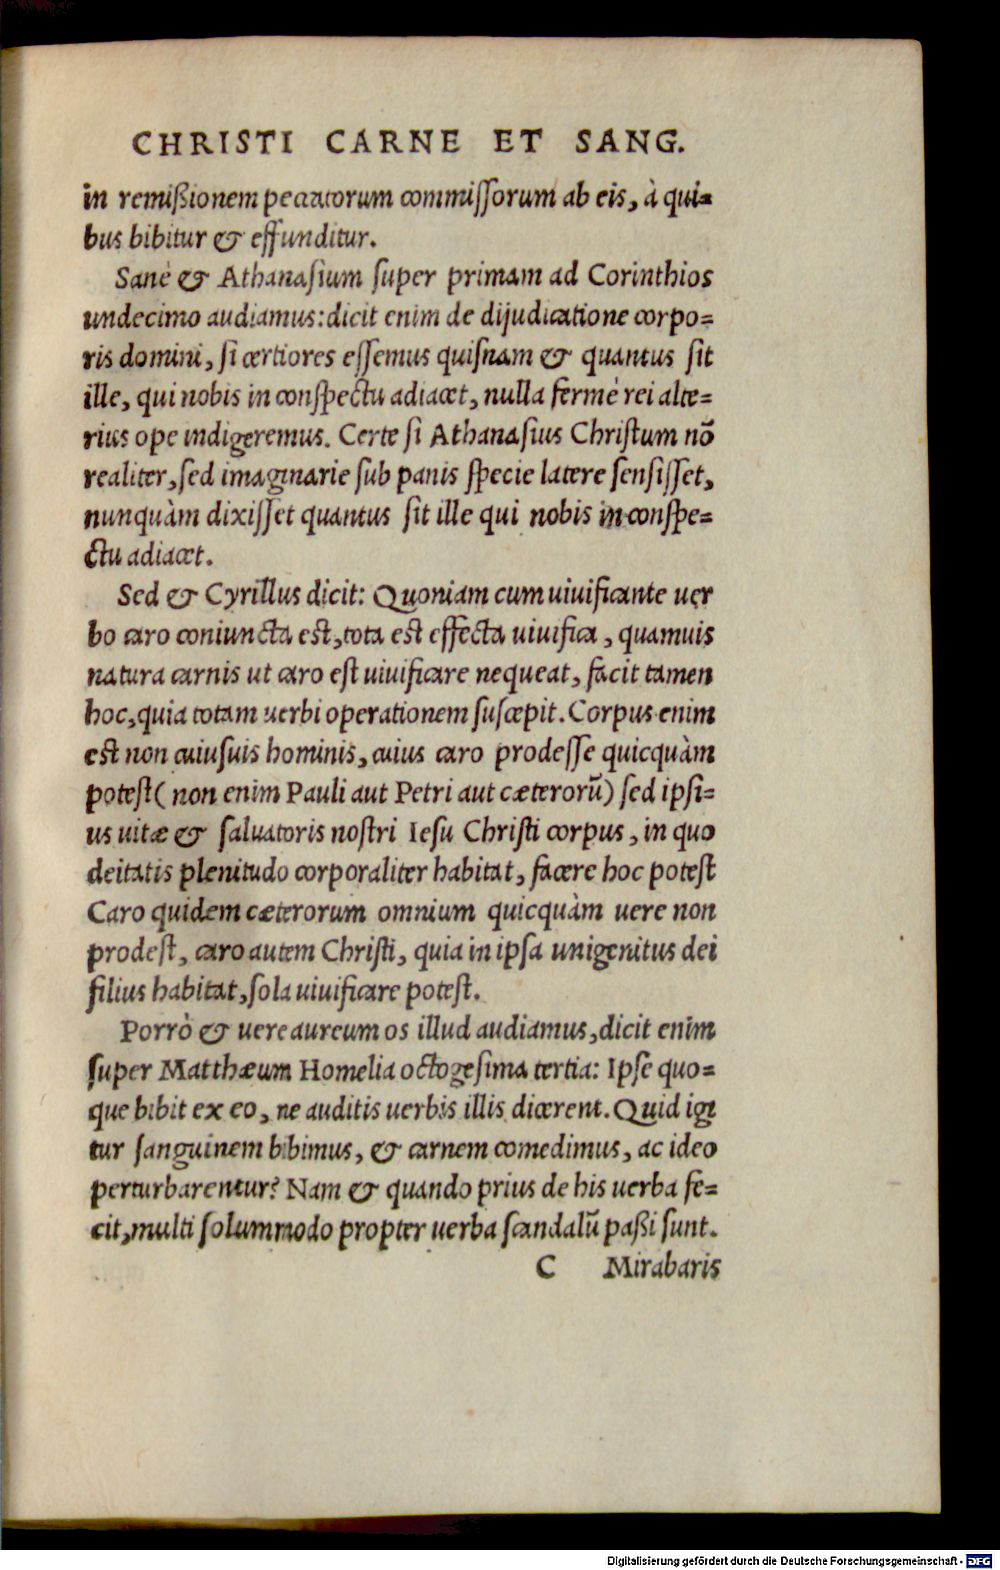 CHRISTI CARNE ET SANG.
in remißionem peccatorum commiſſorum ab eis, à qui=
bus bibitur & effunditur.
Sanè & Athanaſium ſuper primam ad Corinthios
undecimo audiamus: dicit enim de dijudicatione corpo=
ris domini, ſi certiores eſſemus quiſnam & quantus ſit
ille, qui nobis in conſpectu adiacet, nulla fermè rei alte=
rius ope indigeremus. Certe ſi Athanaſius Chriſtum nõ
realiter, ſed imaginarie ſub panis ſpecie latere ſenſiſſet,
nunquàm dixiſſet quantus ſit ille qui nobis in conſpe=
ctu adiacet.
Sed & Cyrillus dicit: Quoniam cum uiuificante uer
bo caro coniuncta eſt, tota est effecta uiuifica, quamuis
natura carnis ut caro eſt uiuificare nequeat, facit tamen
hoc, quia totam uerbi operationem ſuſcepit. Corpus enim
est non cuiuſuis hominis, cuius caro prodeſſe quicquàm
poteſt ( non enim Pauli aut Petri aut cæterorũ) ſed ipſi=
us uitæ & ſaluatoris noſtri Ieſu Chriſti corpus, in quo
deitatis plenitudo corporaliter habitat, facere hoc poteſt
Caro quidem cæterorum omnium quicquàm uere non
prodeſt, caro autem Chriſti, quia in ipſa unigenitus dei
filius habitat, ſola uiuificare poteſt.
Porrò & uere aureum os illud audiamus, dicit enim
ſuper Matthæum Homelia octogeſima tertia: Ipſe quo=
que bibit ex eo, ne auditis uerbis illis dicerent. Quid igi
tur ſanguinem bibimus, & carnem comedimus, ac ideo
perturbarentur? Nam & quando prius de his uerba fe=
cit, multi ſolummodo propter uerba ſcandalũ paßi ſunt.
C Mirabaris
Digitalisierung gefördert durch die Deutsche Forschungsgemeinschaft - DFG